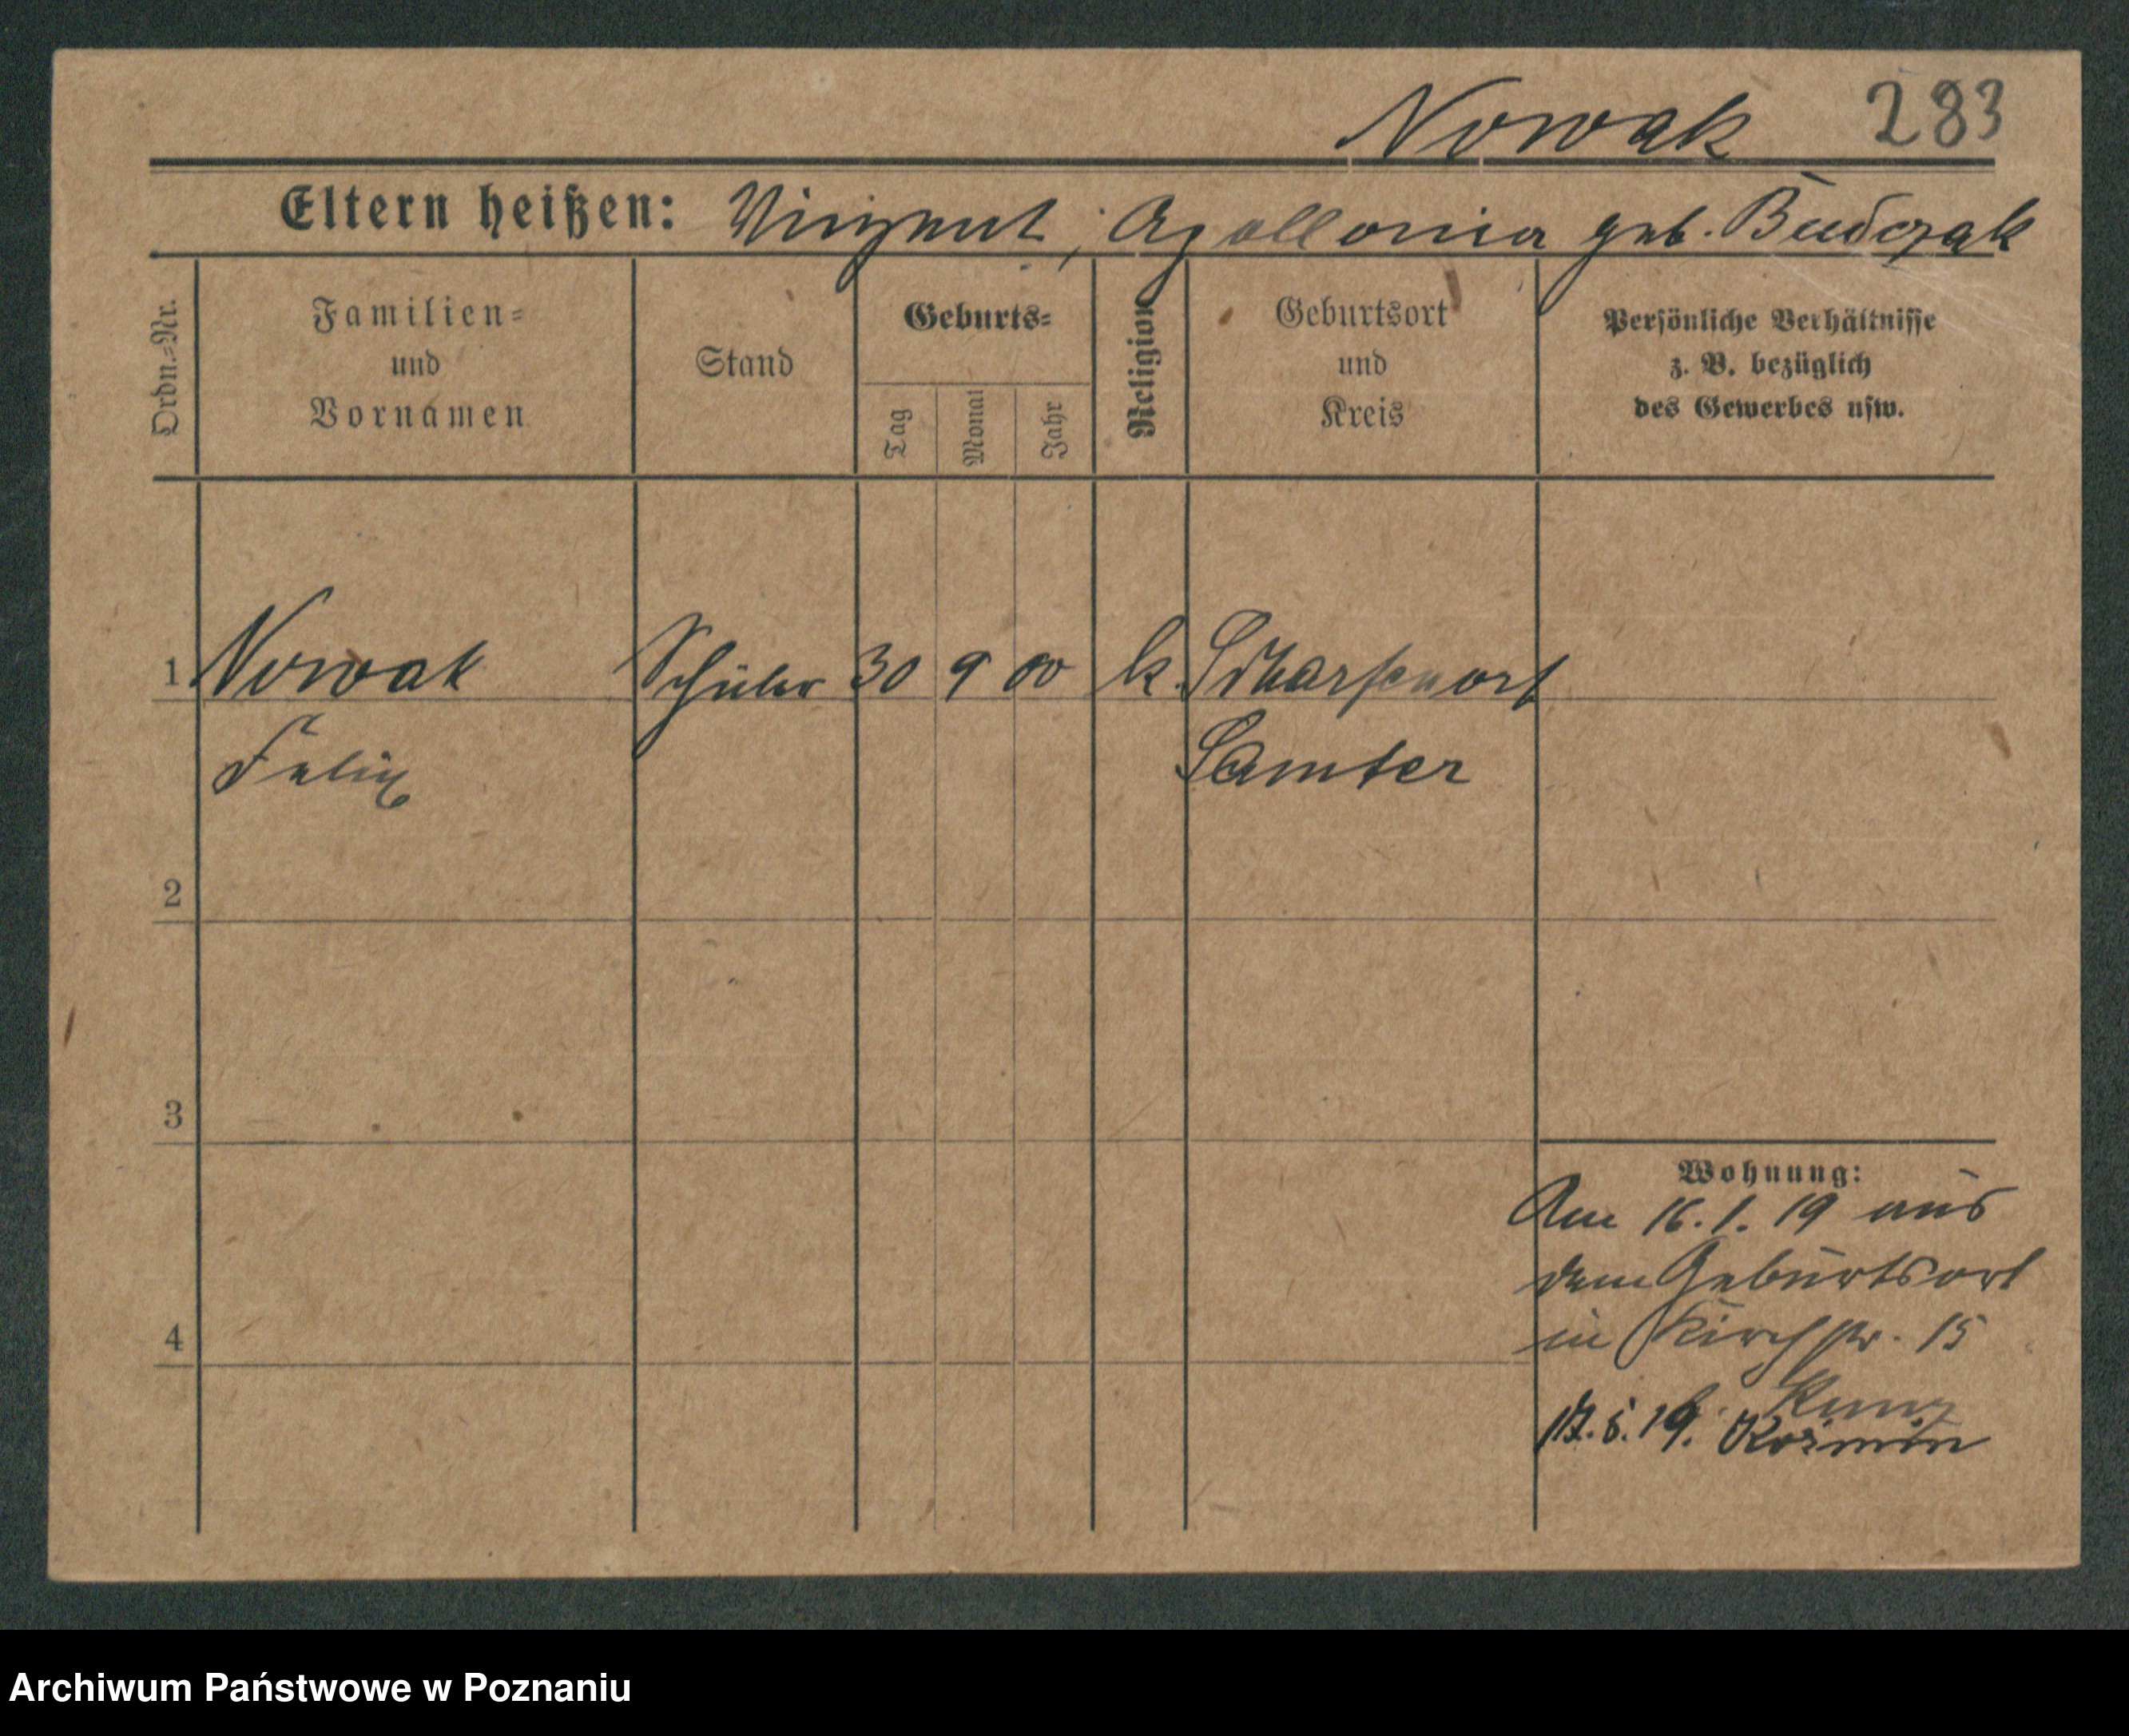 Nowak 283
Eltern heißen: Vinzent, Apollonia geb. Budczak
Ordn.=Nr. Familien= und Vornamen Stand Geburts= Tag Monat Jahr Religion Geburtsort und Kreis Persönliche Verhältnisse z. B. bezüglich des Gewerbes usw.
1 Nowak Schüler 30 9 00 k. Scharfenort
Felix Samter
2
3
Wohnung:
Am 16. 1. 19 aus
dem Geburtsort
4 in Kirchstr. 15
17. 5. 19. Kosmin
Archiwum Państwowe w Poznaniu